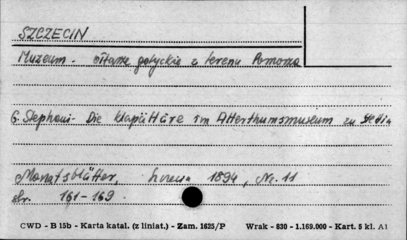 SZCZECIN
Muzeum - ołtarze gotyckie z terenu Pomorza
G. Stephani - Die Klapaltäre im Altertumsmuseum zu Stettin
Monatsblätter, 1894, Nr. 11
str. 161-169
CWD - B 15b - Karta katal. (z liniat.) - Zam. 1625/P Wrak - 830 - 1.169.000 - Kart. 5 kl. A1